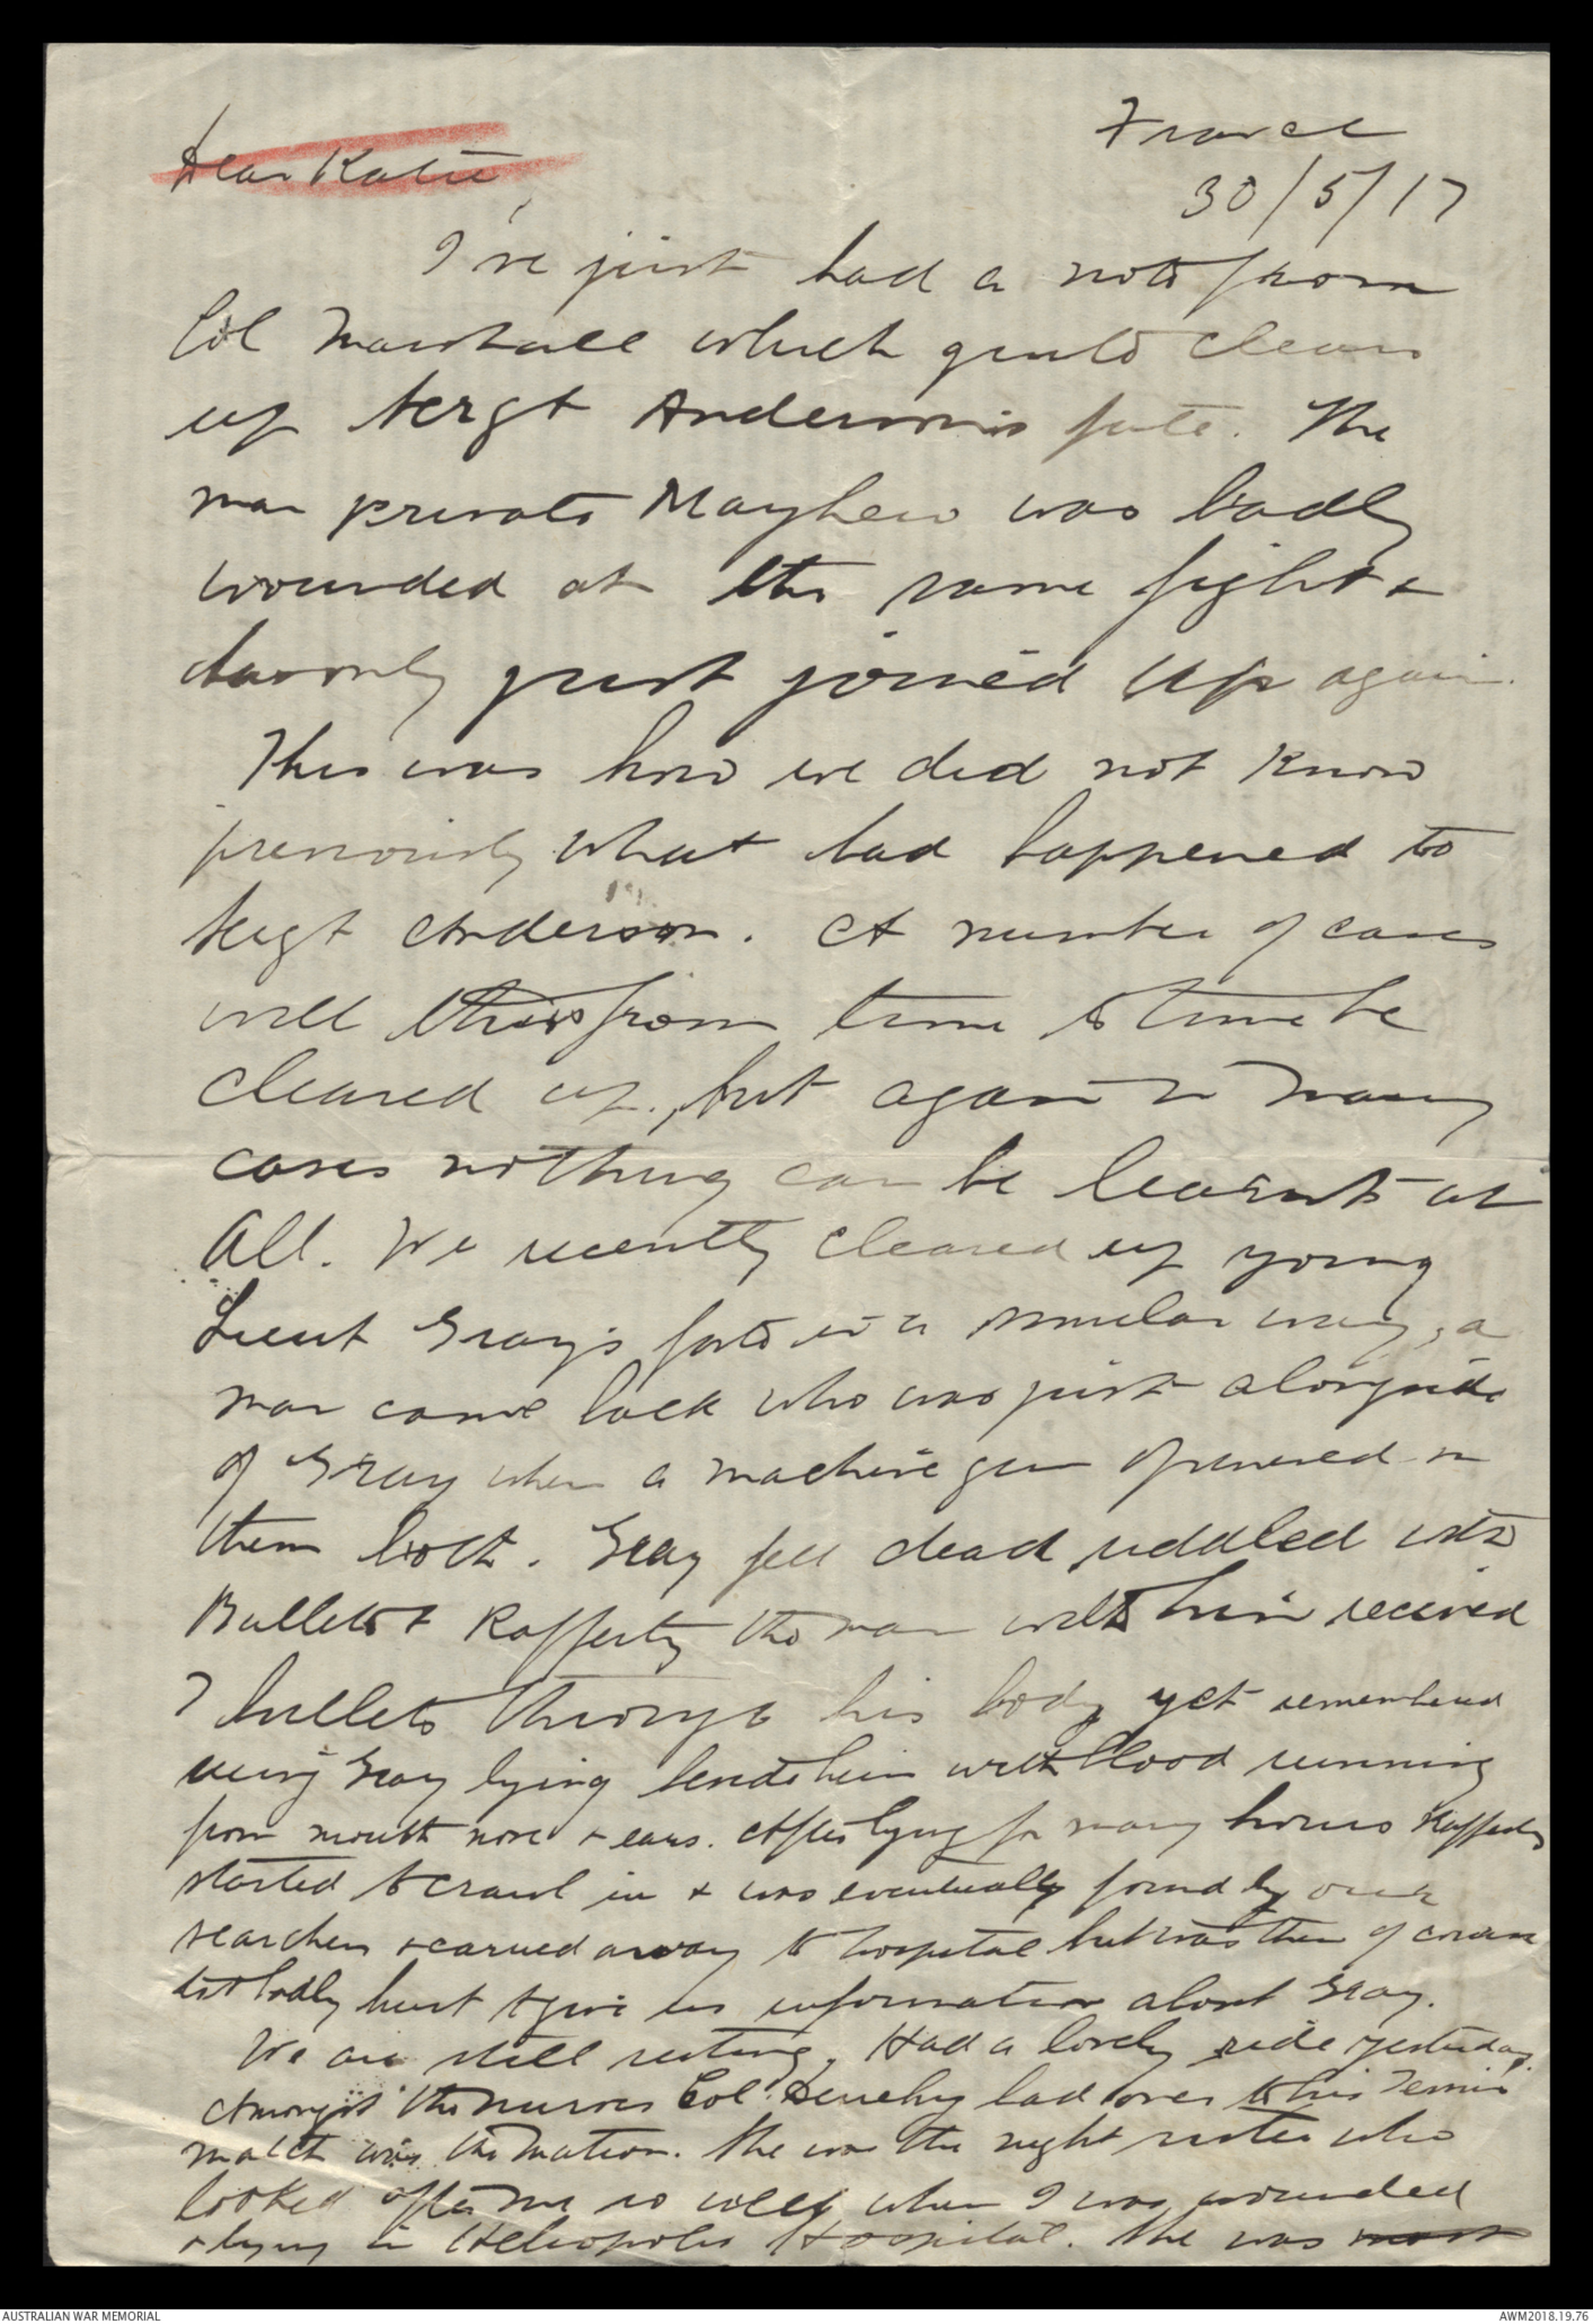 France
30/5/17
Dear Katie,
I've just had a note from
Col Marshall which quite clears
up Sergt Anderson's fate. The
man private Mayhew was badly
wounded at the same fight &
has only just joined up again.
This was how we did not know
previously what had happened to
Sergt Anderson. A number of cases
will thus from time to time be
cleared up, but again in many
cases nothing can be learnt at
all. We recently cleared up young
Lieut Gray's fate in a similar way, a
man came back who was just alongside
of Gray when a machine gun opened on
them both. Gray fell dead riddled with
Bullets & Rafferty the man with him received
7 bullets through his body yet remembered
seeing Gray lying beside him with blood running
from mouth nose & ears. After lying for many hours Rafferty
started to crawl in & was eventually found by our
searchers & carried away to hospital but was then of course
too badly hurt to give us information about Gray.
We are still resting. Had a lovely ride yesterday.
Amongst the nurses Col. had over to his Tennis
match was the Matron. She was the night sister who
looked after me so well when I was wounded
& lying in Heliopolis Hospital. She was most
AUSTRALIAN WAR MEMORIAL
AWM2018.19.76